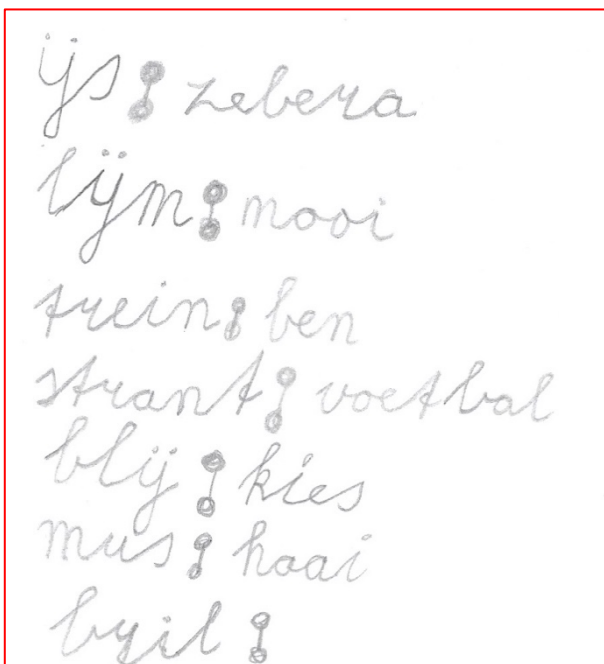 ijs : zebera
lijm : mooi
trein : ben
strant : voetbal
blij : kies
mus : haai
byil :